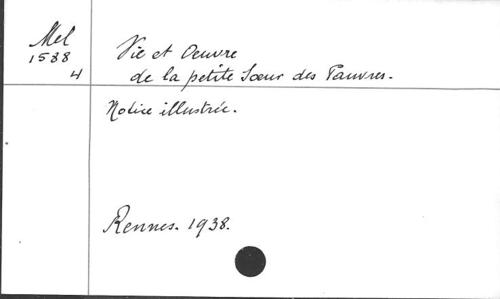 Mel
1538
4
Vie et Oeuvre
de la petite Soeur des Pauvres.
Notice illustrée.
Rennes. 1938.